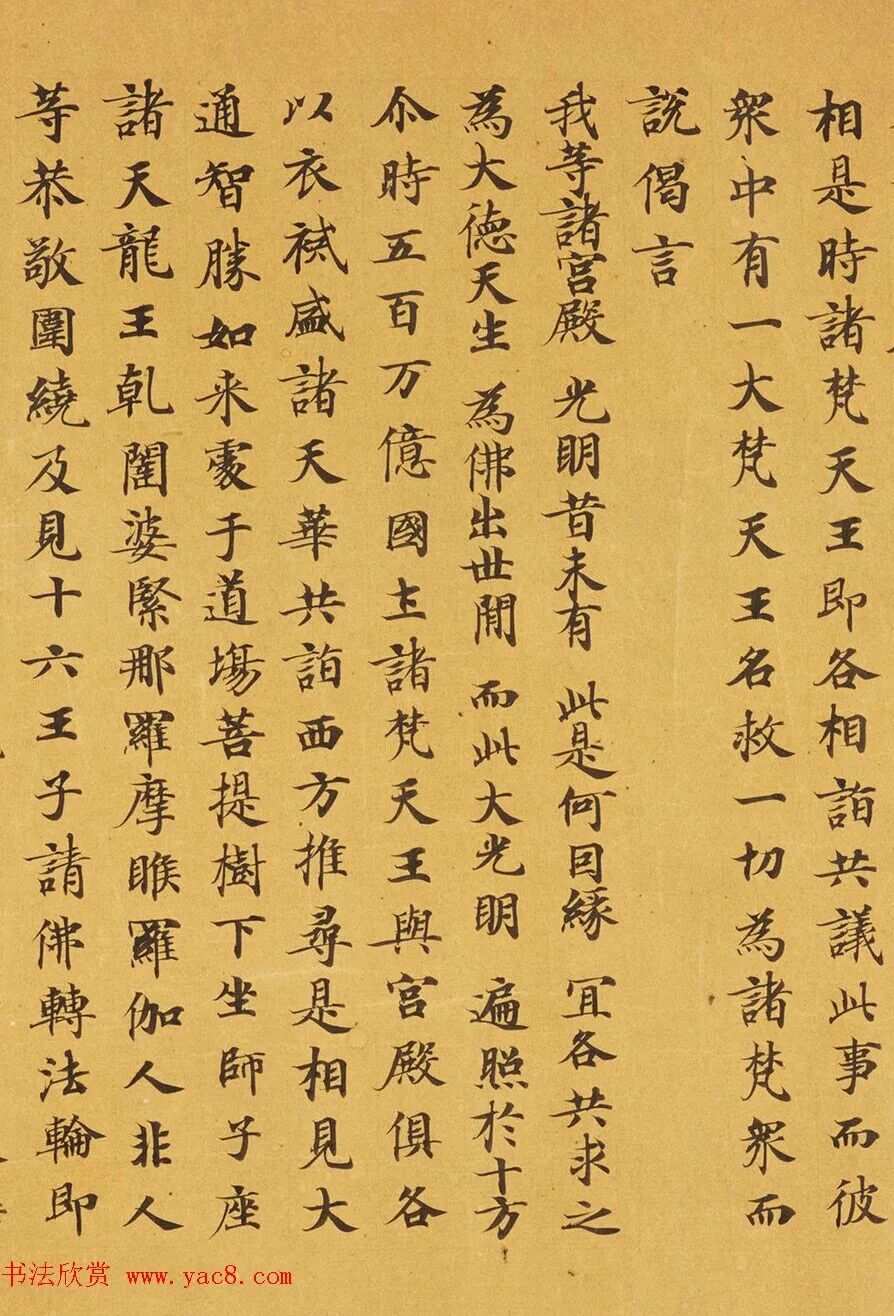 相是時諸梵天王即各相詣共議此事而彼
衆中有一大梵天王名救一切為諸梵衆而
說偈言
我等諸宫殿 光明昔未有 此是何因緣 冝各共求之
為大德天生 為佛出世間 而此大光明 遍照於十方
尒時五百万億國土諸梵天王與宫殿俱各
以衣裓盛諸天華共詣西方推尋是相見大
通智勝如来處于道場菩提樹下坐師子座
諸天龍王乹闥婆緊那羅摩睺羅伽人非人
等恭敬圍繞及見十六王子請佛轉法輪即
书法欣赏 www.yac8.com